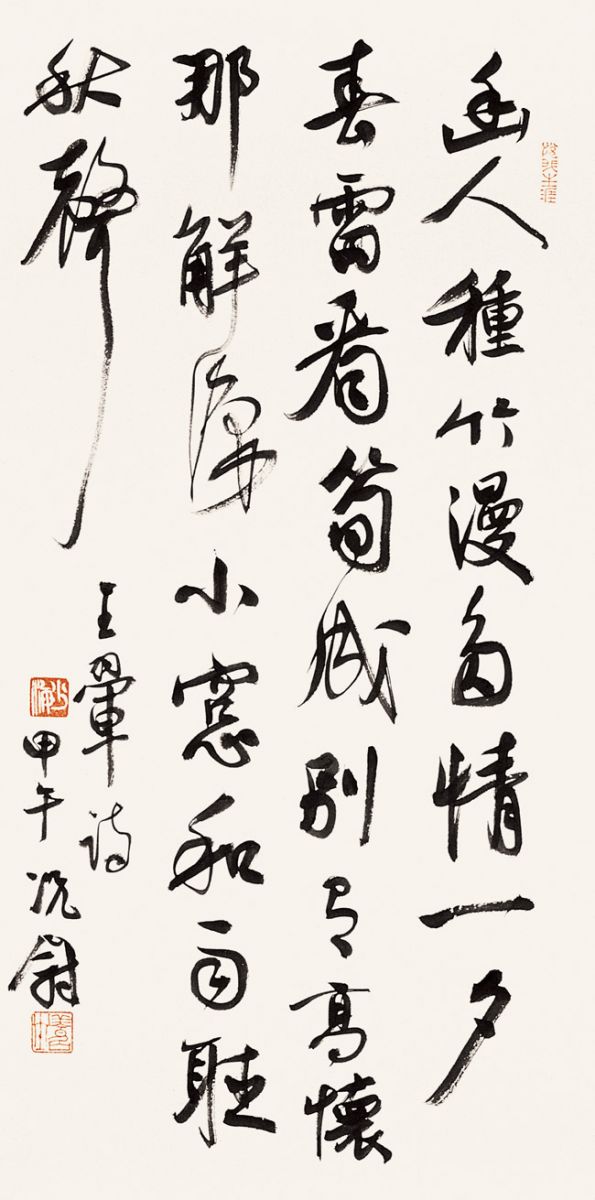 幽人種竹漫多情一夕
春雷看筍成別有高懷
那解得小窓和雨聽
秋聲
王翬詩
甲午